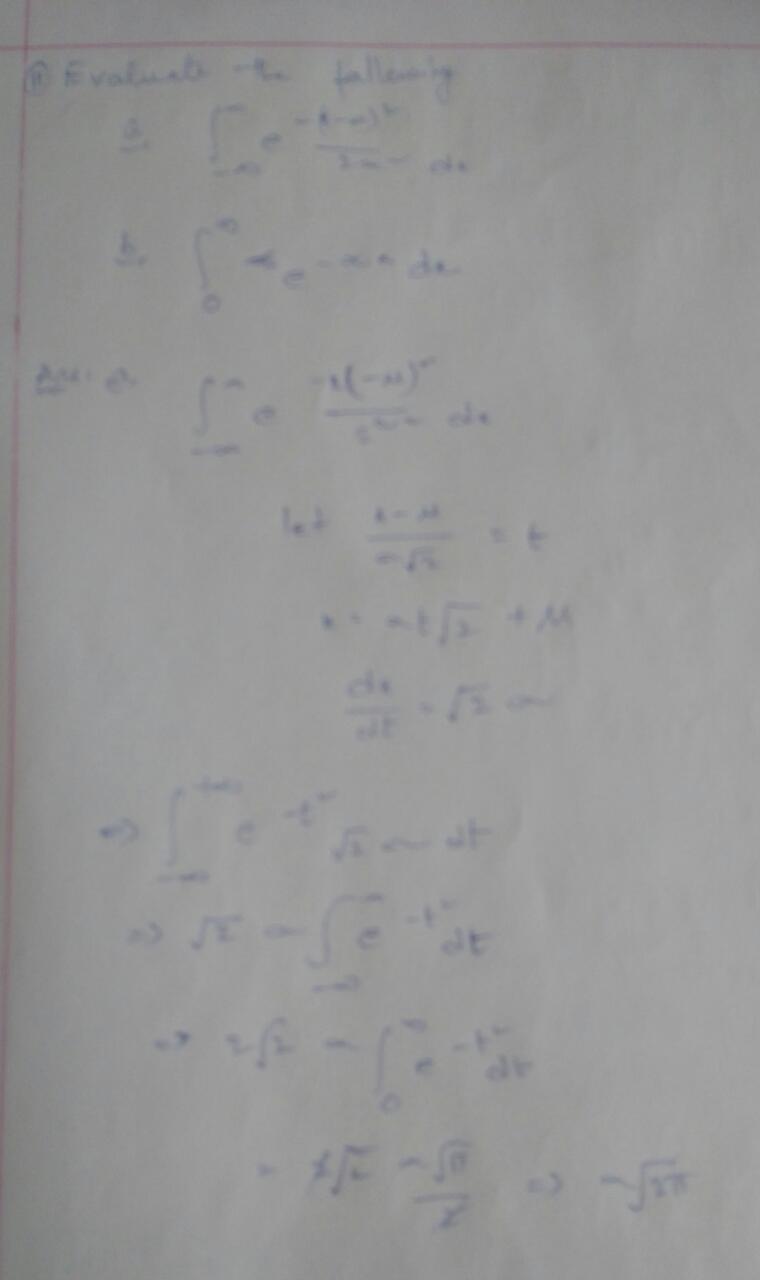 Evaluate the following
a. ∫_{-∞}^{∞} e^{-(x-μ)²/2σ²} dx
b. ∫_0^∞ x e^{-αx} dx
Ans: a. ∫_{-∞}^{∞} e dx
let (x-μ)/(σ√2) = t
x = σt√2 + μ
dx/dt = √2 σ
⇒ ∫_{-∞}^{+∞} e^{-t²} √2 σ dt
⇒ √2 σ ∫_{-∞}^{∞} e^{-t²} dt
⇒ 2√2 σ ∫_0^∞ e^{-t²} dt
= 2√2 σ√π/2 ⇒ σ√2π